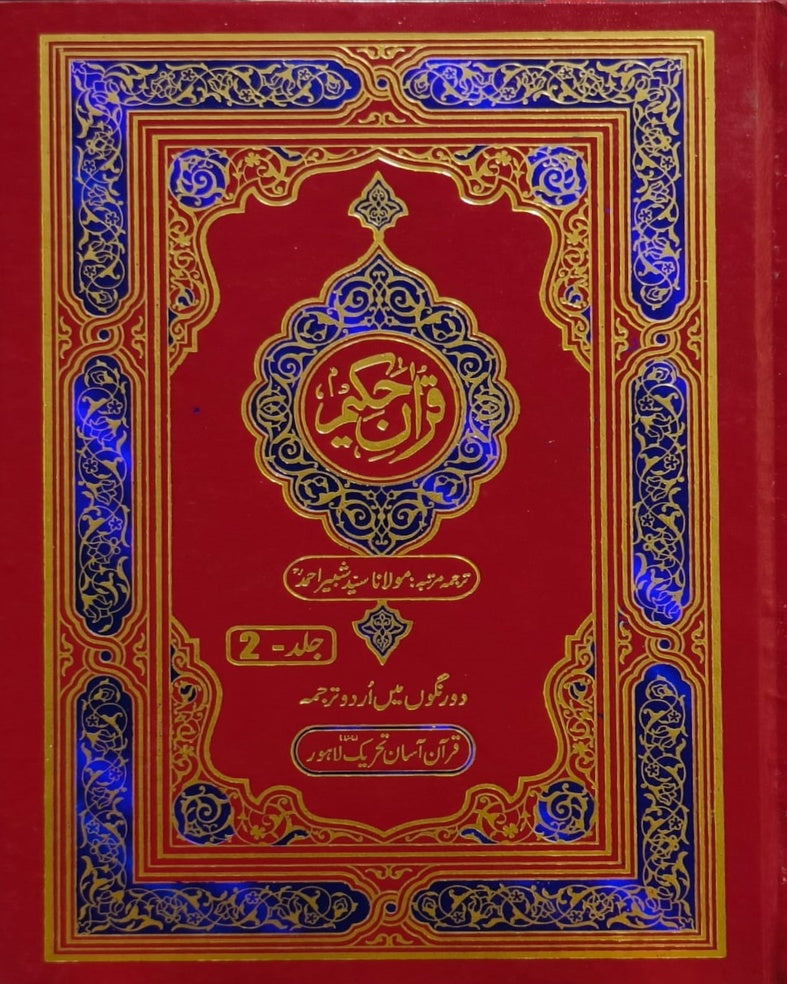 قرآن حکیم
ترجمہ مرتبہ: مولانا سیّد شبیر احمدؒ
جلد - 2
دو رنگوں میں اُردو ترجمہ
قرآن آسان تحریک لاہور